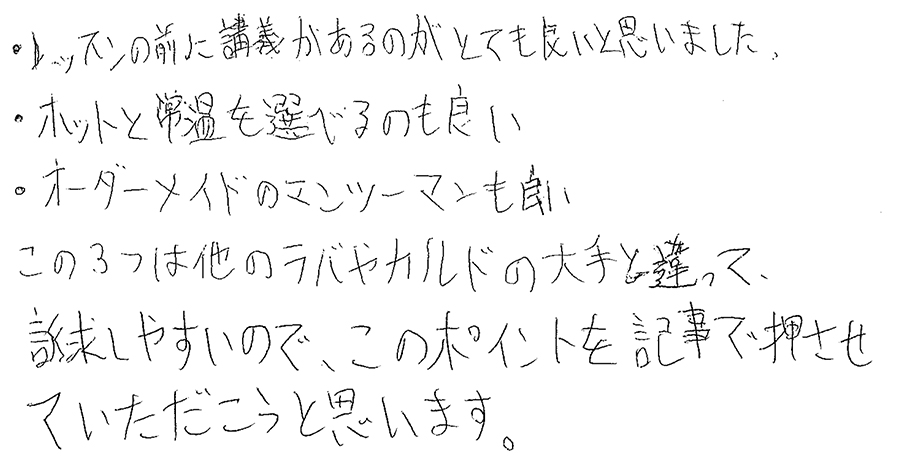 ・レッスンの前に講義があるのがとても良いと思いました。
・ホットと常温を選べるのも良い
・オーダーメイドのマンツーマンも良い
この3つは他のラバやカルドの大手と違って、
訴求しやすいので、このポイントを記事で押させ
ていただこうと思います。